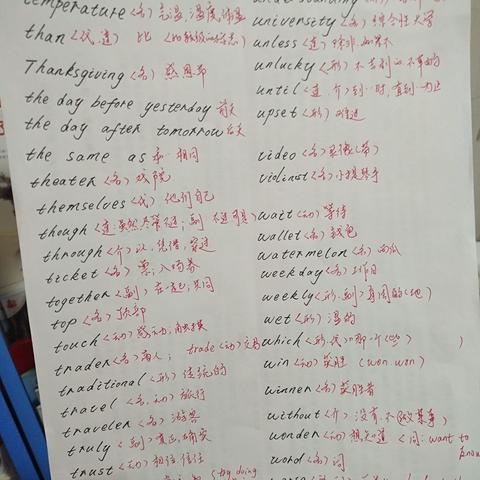 temperature (名) 气温,温度,体温
than (代,连) 比
Thanksgiving (名) 感恩节
the day before yesterday 前天
the day after tomorrow 后天
the same as 和…相同
theater (名) 戏院
themselves (代) 他们自己
though (连 虽然,尽管
through (介) 以,凭借,穿过
ticket (名) 票,入场券
together (副) 在一起,共同
top (名) 顶部
touch (动) 感动,触摸
trader (名) 商人; trade (动) 交易
traditional (形) 传统的
travel (名,动) 旅行
traveler (名) 游客
truly (副) 真正,确实
trust (动) 相信,信任
(try doing
university (名) 综合性大学
unless (连) 除非,如果不
unlucky (形) 不吉利的,不幸的
until (连,介) 到…时,直到…为止
upset (形) 难过
video (名) 录像(带)
violinst (名) 小提琴手
wait (动) 等待
wallet (名) 钱包
watermelon (名) 西瓜
weekday (名) 工作日
weekly (形,副) 每周的(地)
wet (形) 湿的
which (形,代) 哪个(些)
win (动) 获胜 (won won)
winner (名) 获胜者
without (介) 没有,不做某事)
wonder (动) 想知道 (同: want to know
word (名) 词